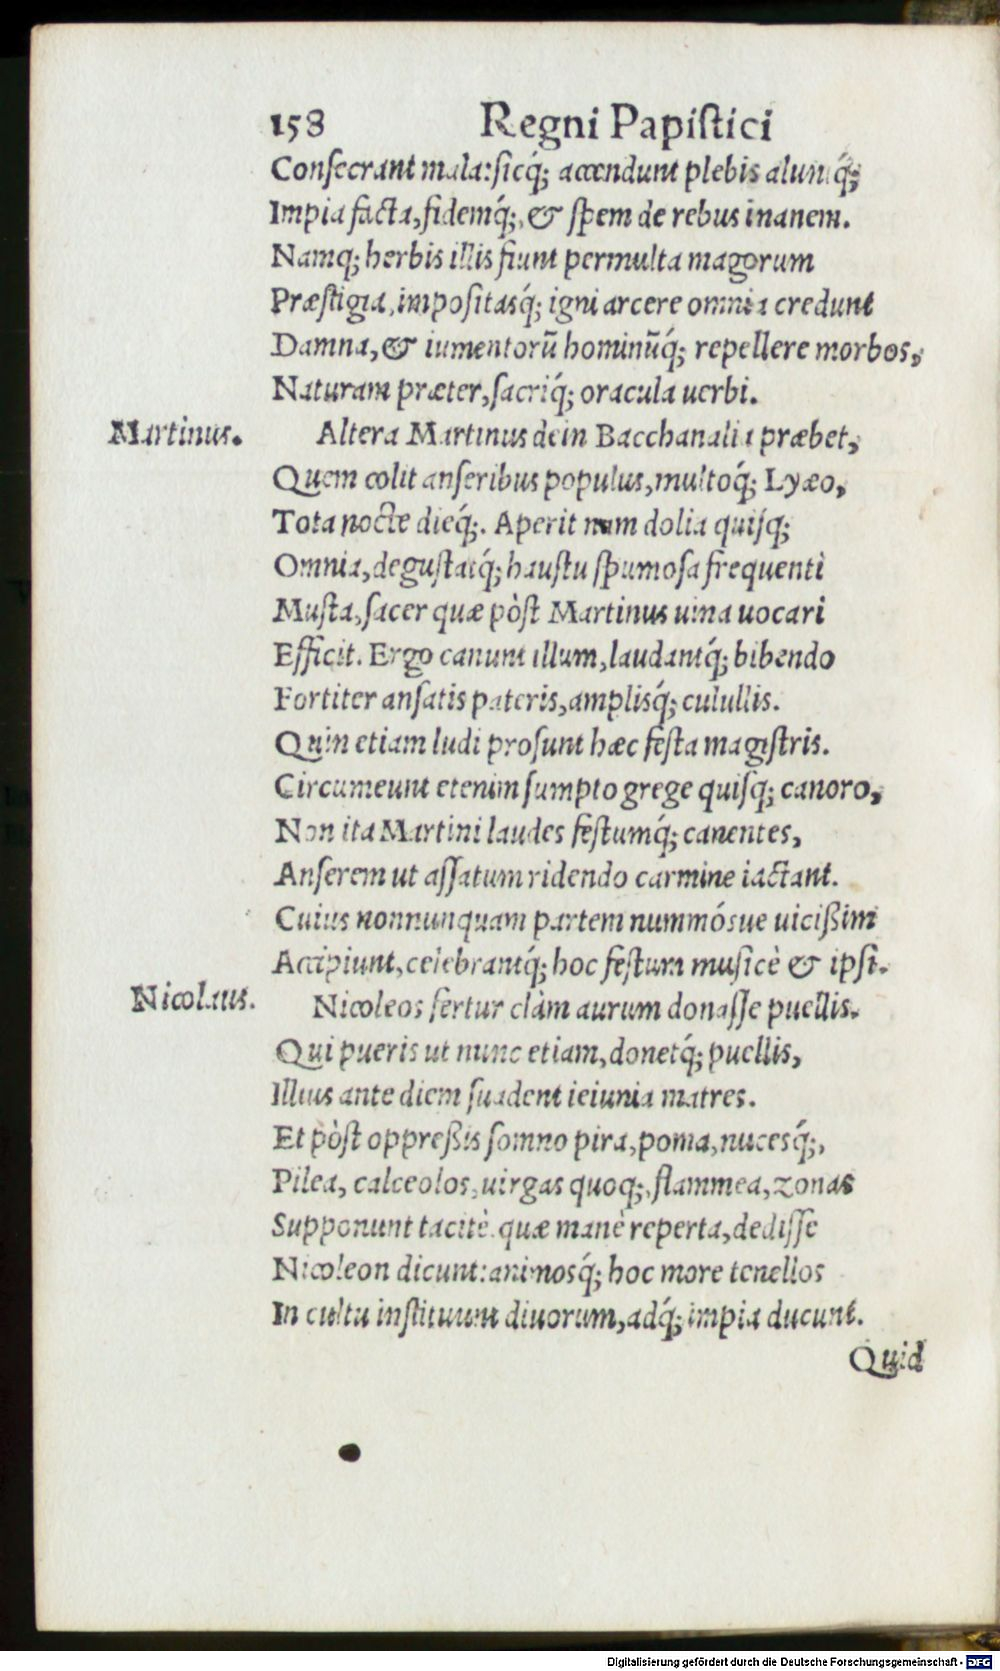 158 Regni Papiſtici
Conſecrant mala: ſicq́; accendunt plebis aluntq́;
Impia facta, fidemq́;, & ſpem de rebus inanem.
Namq; herbis illis fiunt permulta magorum
Præſtigia, impoſitasq́; igni arcere omnia credunt
Damna, & iumentorũ hominũq́; repellere morbos,
Naturam præter, ſacriq́; oracula uerbi.
Martinus.
Altera Martinus dein Bacchanalia præbet,
Quem colit anſeribus populus, multoq́; Lyæo,
Tota nocte dieq́;. Aperit nam dolia quiſq;
Omnia, deguſtatq́; hauſtu ſpumoſa frequenti
Muſta, ſacer quæ pòſt Martinus uina uocari
Efficit. Ergo canunt illum, laudantq́; bibendo
Fortiter anſatis pateris, amplisq́; culullis.
Quin etiam ludi proſunt hæc feſta magiſtris.
Circumeunt etenim ſumpto grege quiſq; canoro,
Non ita Martini laudes feſtumq́; canentes,
Anſerem ut aſſatum ridendo carmine iactant.
Cuius nonnunquam partem nummósue uicißim
Accipiunt, celebrantq́; hoc feſtum muſicè & ipſi.
Nicolaus.
Nicoleos fertur clàm aurum donaſſe puellis.
Qui pueris ut nunc etiam, donetq́; puellis,
Illius ante diem ſuadent ieiunia matres.
Et pòſt oppreßis ſomno pira, poma, nucesq́;,
Pilea, calceolos, uirgas quoq;, flammea, zonas
Supponunt tacitè. quæ manè reperta, dediſſe
Nicoleon dicunt: animosq́; hoc more tenellos
In cultu inſtituunt diuorum, adq́; impia ducunt.
Quid
Digitalisierung gefördert durch die Deutsche Forschungsgemeinschaft - DFG